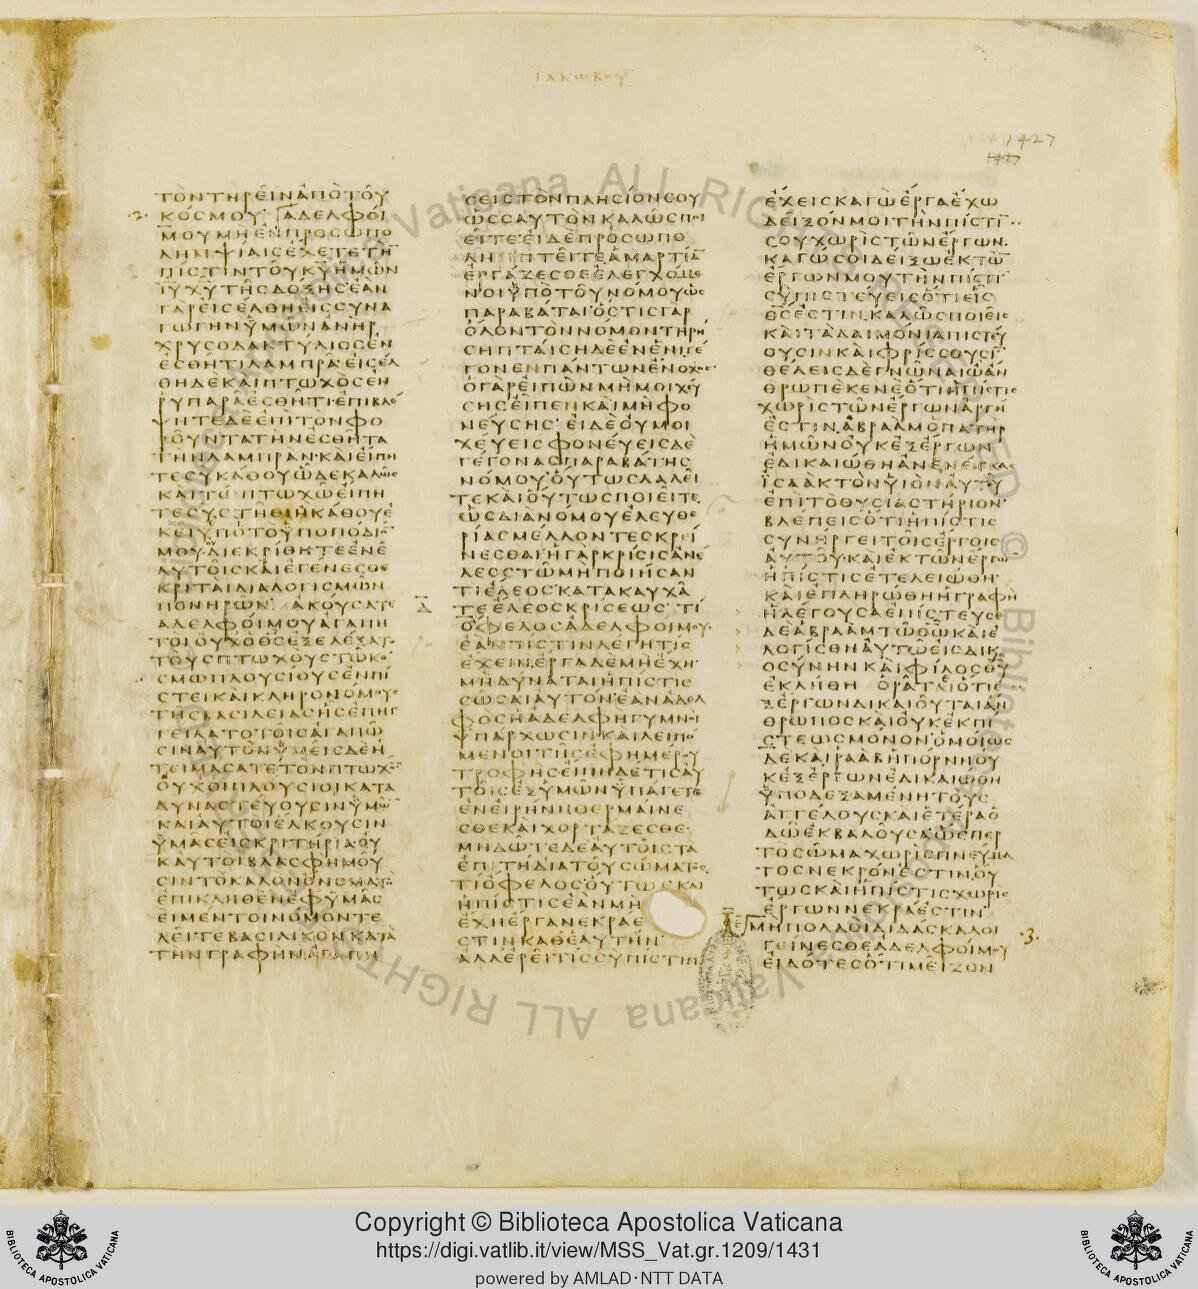 ΙΑΚΩΒΟΥ
1427
ΤΟΝΤΗΡΕΙΝΑΠΟΤΟΥ
ΚΟΣΜΟΥ ΑΔΕΛΦΟΙ
ΜΟΥΜΗΕΝΠΡΟΣΩΠΟ
ΛΗΜΨΙΑΙΣΕΧΕΤΕΤΗ
ΠΙΣΤΙΝΤΟΥΚΥΗΜΩΝ
ΙΥΧΥΤΗΣΔΟΞΗΣΕΑΝ
ΓΑΡΕΙΣΕΛΘΗΕΙΣΣΥΝΑ
ΓΩΓΗΝΥΜΩΝΑΝΗΡ
ΧΡΥΣΟΔΑΚΤΥΛΙΟΣΕΝ
ΕΣΘΗΤΙΛΑΜΠΡΑΕΙΣΕΛ
ΘΗΔΕΚΑΙΠΤΩΧΟΣΕΝ
ΡΥΠΑΡΑΕΣΘΗΤΙΕΠΙΒΛΕ
ΨΗΤΕΔΕΕΠΙΤΟΝΦΟ
ΡΟΥΝΤΑΤΗΝΕΣΘΗΤΑ
ΤΗΝΛΑΜΠΡΑΝΚΑΙΕΙΠΗ
ΤΕΣΥΚΑΘΟΥΩΔΕΚΑΛΩΣ
ΚΑΙΤΩΠΤΩΧΩΕΙΠΗ
ΤΕΣΥΣΤΗΘΙΗΚΑΘΟΥΕ
ΚΕΙΥΠΟΤΟΥΠΟΠΟΔΙΟ
ΜΟΥ ΔΙΕΚΡΙΘΗΤΕΕΝΕ
ΑΥΤΟΙΣΚΑΙΕΓΕΝΕΣΘΕ
ΚΡΙΤΑΙΔΙΑΛΟΓΙΣΜΩΝ
ΠΟΝΗΡΩΝ ΑΚΟΥΣΑΤΕ
ΑΔΕΛΦΟΙΜΟΥΑΓΑΠΗ
ΤΟΙΟΥΧΟΘΣΕΞΕΛΕΞΑΤ
ΤΟΥΣΠΤΩΧΟΥΣΤΩΚΟ
ΣΜΩΠΛΟΥΣΙΟΥΣΕΝΠΙ
ΣΤΕΙΚΑΙΚΛΗΡΟΝΟΜΟΥΣ
ΤΗΣΒΑΣΙΛΕΙΑΣΗΣΕΠΗΓ
ΓΕΙΛΑΤΟΤΟΙΣΑΓΑΠΩ
ΣΙΝΑΥΤΟΝΥΜΕΙΣΔΕΗ
ΤΕΙΜΑΣΑΤΕΤΟΝΠΤΩΧΟ
ΟΥΧΟΙΠΛΟΥΣΙΟΙΚΑΤΑ
ΔΥΝΑΣΤΕΥΟΥΣΙΝΥΜΩ
ΚΑΙΑΥΤΟΙΕΛΚΟΥΣΙΝ
ΥΜΑΣΕΙΣΚΡΙΤΗΡΙΑΟΥ
ΚΑΥΤΟΙΒΛΑΣΦΗΜΟΥ
ΣΙΝΤΟΚΑΛΟΝΟΝΟΜΑΤΟ
ΕΠΙΚΛΗΘΕΝΕΦΥΜΑΣ
ΕΙΜΕΝΤΟΙΝΟΜΟΝΤΕ
ΛΕΙΤΕΒΑΣΙΛΙΚΟΝΚΑΤΑ
ΤΗΝΓΡΑΦΗΝΑΓΑΠΗ
ΣΕΙΣΤΟΝΠΛΗΣΙΟΝΣΟΥ
ΩΣΣΑΥΤΟΝΚΑΛΩΣΠΟΙ
ΕΙΤΕΕΙΔΕΠΡΟΣΩΠΟ
ΛΗΜΠΤΕΙΤΕΑΜΑΡΤΙΑ
ΕΡΓΑΖΕΣΘΕΕΛΕΓΧΟΜΕ
ΝΟΙΥΠΟΤΟΥΝΟΜΟΥΩΣ
ΠΑΡΑΒΑΤΑΙΟΣΤΙΣΓΑΡ
ΟΛΟΝΤΟΝΝΟΜΟΝΤΗΡΗ
ΣΗΠΤΑΙΣΗΔΕΕΝΕΝΙΓΕ
ΓΟΝΕΝΠΑΝΤΩΝΕΝΟΧΟΣ
ΟΓΑΡΕΙΠΩΝΜΗΜΟΙΧΕΥ
ΣΗΣΕΙΠΕΝΚΑΙΜΗΦΟ
ΝΕΥΣΗΣ ΕΙΔΕΟΥΜΟΙ
ΧΕΥΕΙΣΦΟΝΕΥΕΙΣΔΕ
ΓΕΓΟΝΑΣΠΑΡΑΒΑΤΗΣ
ΝΟΜΟΥΟΥΤΩΣΛΑΛΕΙ
ΤΕΚΑΙΟΥΤΩΣΠΟΙΕΙΤΕ
ΩΣΔΙΑΝΟΜΟΥΕΛΕΥΘΕ
ΡΙΑΣΜΕΛΛΟΝΤΕΣΚΡΕΙ
ΝΕΣΘΑΙΗΓΑΡΚΡΙΣΙΣΑΝΕ
ΛΕΟΣΤΩΜΗΠΟΙΗΣΑΝ
ΤΙΕΛΕΟΣΚΑΤΑΚΑΥΧΑ
ΤΕΕΛΕΟΣΚΡΙΣΕΩΣ ΤΙ
ΟΦΕΛΟΣΑΔΕΛΦΟΙΜΟΥ
ΕΑΝΠΙΣΤΙΝΛΕΓΗΤΙΣ
ΕΧΕΙΝΕΡΓΑΔΕΜΗΕΧΗ
ΜΗΔΥΝΑΤΑΙΗΠΙΣΤΙΣ
ΣΩΣΑΙΑΥΤΟΝΕΑΝΑΔΕΛ
ΦΟΣΗΑΔΕΛΦΗΓΥΜΝΟΙ
ΥΠΑΡΧΩΣΙΝΚΑΙΛΕΙΠΟ
ΜΕΝΟΙΤΗΣΕΦΗΜΕΡΟΥ
ΤΡΟΦΗΣΕΙΠΗΔΕΤΙΣΑΥ
ΤΟΙΣΕΞΥΜΩΝΥΠΑΓΕΤΕ
ΕΝΕΙΡΗΝΗΘΕΡΜΑΙΝΕ
ΣΘΕΚΑΙΧΟΡΤΑΖΕΣΘΕ
ΜΗΔΩΤΕΔΕΑΥΤΟΙΣΤΑ
ΕΠΙΤΗΔΙΑΤΟΥΣΩΜΑΤΟΣ
ΤΙΟΦΕΛΟΣΟΥΤΩΣΚΑΙ
ΗΠΙΣΤΙΣΕΑΝΜΗ
ΕΧΗΕΡΓΑΝΕΚΡΑΕ
ΣΤΙΝΚΑΘΕΑΥΤΗΝ
ΑΛΛΕΡΕΙΤΙΣΣΥΠΙΣΤΙΝ
ΕΧΕΙΣΚΑΓΩΕΡΓΑΕΧΩ
ΔΕΙΞΟΝΜΟΙΤΗΝΠΙΣΤΙ
ΣΟΥΧΩΡΙΣΤΩΝΕΡΓΩΝ
ΚΑΓΩΣΟΙΔΕΙΞΩΕΚΤΩ
ΕΡΓΩΝΜΟΥΤΗΝΠΙΣΤΙ
ΣΥΠΙΣΤΕΥΕΙΣΟΤΙΕΙΣ
ΘΣΕΣΤΙΝΚΑΛΩΣΠΟΙΕΙΣ
ΚΑΙΤΑΔΑΙΜΟΝΙΑΠΙΣΤΕΥ
ΟΥΣΙΝΚΑΙΦΡΙΣΣΟΥΣΙ
ΘΕΛΕΙΣΔΕΓΝΩΝΑΙΩΑΝ
ΘΡΩΠΕΚΕΝΕΟΤΙΗΠΙΣΤΙΣ
ΧΩΡΙΣΤΩΝΕΡΓΩΝΑΡΓΗ
ΕΣΤΙΝΑΒΡΑΑΜΟΠΑΤΗΡ
ΗΜΩΝΟΥΚΕΞΕΡΓΩΝ
ΕΔΙΚΑΙΩΘΗΑΝΕΝΕΓΚΑΣ
ΙΣΑΑΚΤΟΝΥΙΟΝΑΥΤΟΥ
ΕΠΙΤΟΘΥΣΙΑΣΤΗΡΙΟΝ
ΒΛΕΠΕΙΣΟΤΙΗΠΙΣΤΙΣ
ΣΥΝΗΡΓΕΙΤΟΙΣΕΡΓΟΙΣ
ΑΥΤΟΥΚΑΙΕΚΤΩΝΕΡΓΩ
ΗΠΙΣΤΙΣΕΤΕΛΕΙΩΘΗ
ΚΑΙΕΠΛΗΡΩΘΗΗΓΡΑΦΗ
ΗΛΕΓΟΥΣΑΕΠΙΣΤΕΥΣΕ
ΔΕΑΒΡΑΑΜΤΩΘΩΚΑΙΕ
ΛΟΓΙΣΘΗΑΥΤΩΕΙΣΔΙΚΑΙ
ΟΣΥΝΗΝΚΑΙΦΙΛΟΣΘΥ
ΕΚΛΗΘΗ ΟΡΑΤΑΙΟΤΙΕ
ΞΕΡΓΩΝΔΙΚΑΙΟΥΤΑΙΑΝ
ΘΡΩΠΟΣΚΑΙΟΥΚΕΚΠΙ
ΣΤΕΩΣΜΟΝΟΝΟΜΟΙΩΣ
ΔΕΚΑΙΡΑΑΒΗΠΟΡΝΗΟΥ
ΚΕΞΕΡΓΩΝΕΔΙΚΑΙΩΘΗ
ΥΠΟΔΕΞΑΜΕΝΗΤΟΥΣ
ΑΓΓΕΛΟΥΣΚΑΙΕΤΕΡΑΟ
ΔΩΕΚΒΑΛΟΥΣΑΩΣΠΕΡ
ΤΟΣΩΜΑΧΩΡΙΣΠΝΕΥΜΑ
ΤΟΣΝΕΚΡΟΝΕΣΤΙΝΟΥ
ΤΩΣΚΑΙΗΠΙΣΤΙΣΧΩΡΙΣ
ΕΡΓΩΝΝΕΚΡΑΕΣΤΙΝ
ΜΗΠΟΛΛΟΙΔΙΔΑΣΚΑΛΟΙ
ΓΕΙΝΕΣΘΕΑΔΕΛΦΟΙΜΟΥ
ΕΙΔΟΤΕΣΟΤΙΜΕΙΖΟΝ
·2·
Δ
·3·
Copyright © Biblioteca Apostolica Vaticana
https://digi.vatlib.it/view/MSS_Vat.gr.1209/1431
powered by AMLAD·NTT DATA
BIBLIOTECA APOSTOLICA VATICANA
BIBLIOTECA APOSTOLICA VATICANA